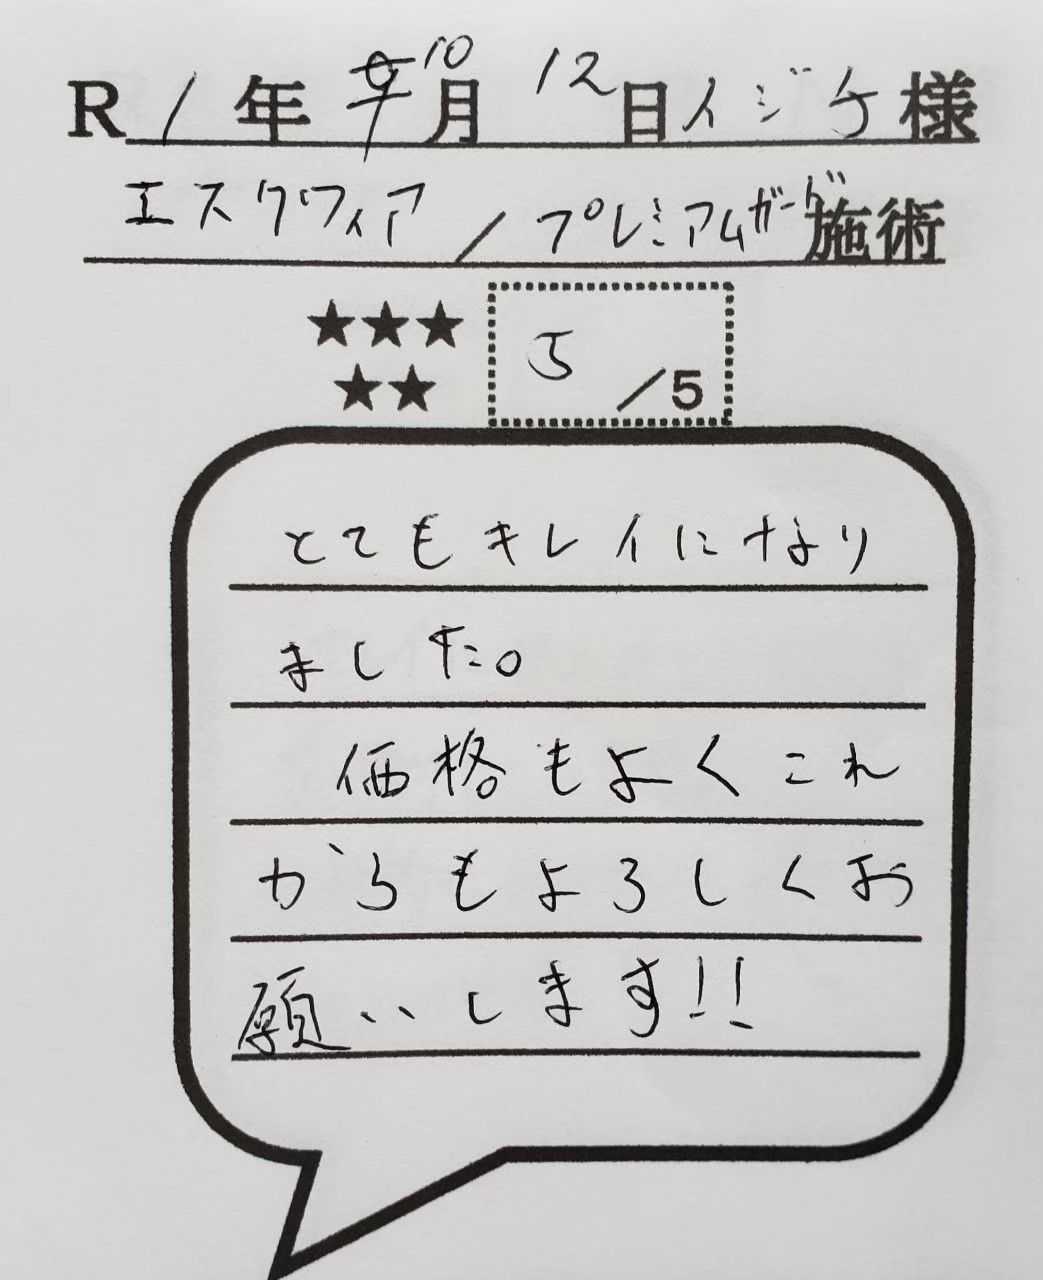 R1年10月12日イジケ様
エスクワィア/プレミアムガード施術
★★★
★★
5/5
とてもキレイになり
ました。
価格もよくこれ
からもよろしくお
願いします!!